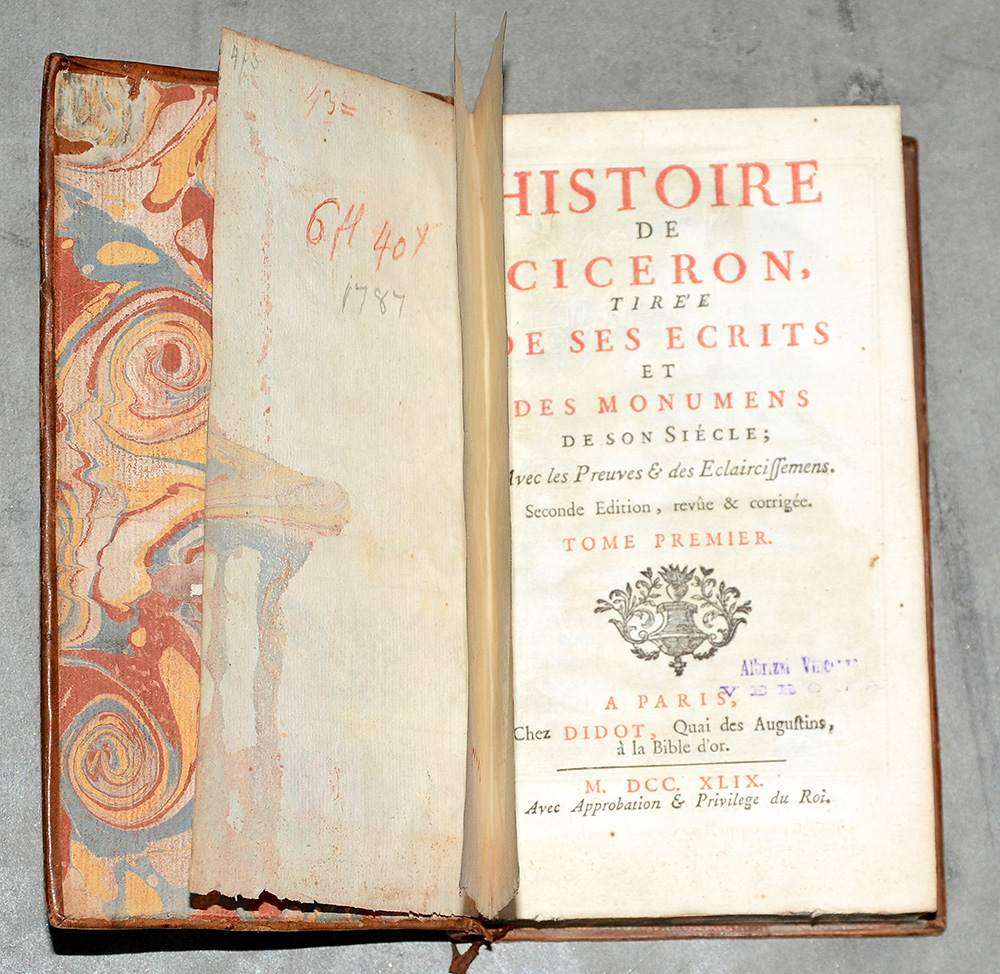 43=
40
1787
HISTOIRE
DE
CICERON,
TIRE'E
DE SES ECRITS
ET
DES MONUMENS
DE SON SIÉCLE;
Avec les Preuves & des Eclaircissemens.
Seconde Edition, revûe & corrigée.
TOME PREMIER.
Albrizzi
VERONA
A PARIS,
Chez DIDOT, Quai des Augustins,
à la Bible d'or.
M. DCC. XLIX.
Avec Approbation & Privilege du Roi.